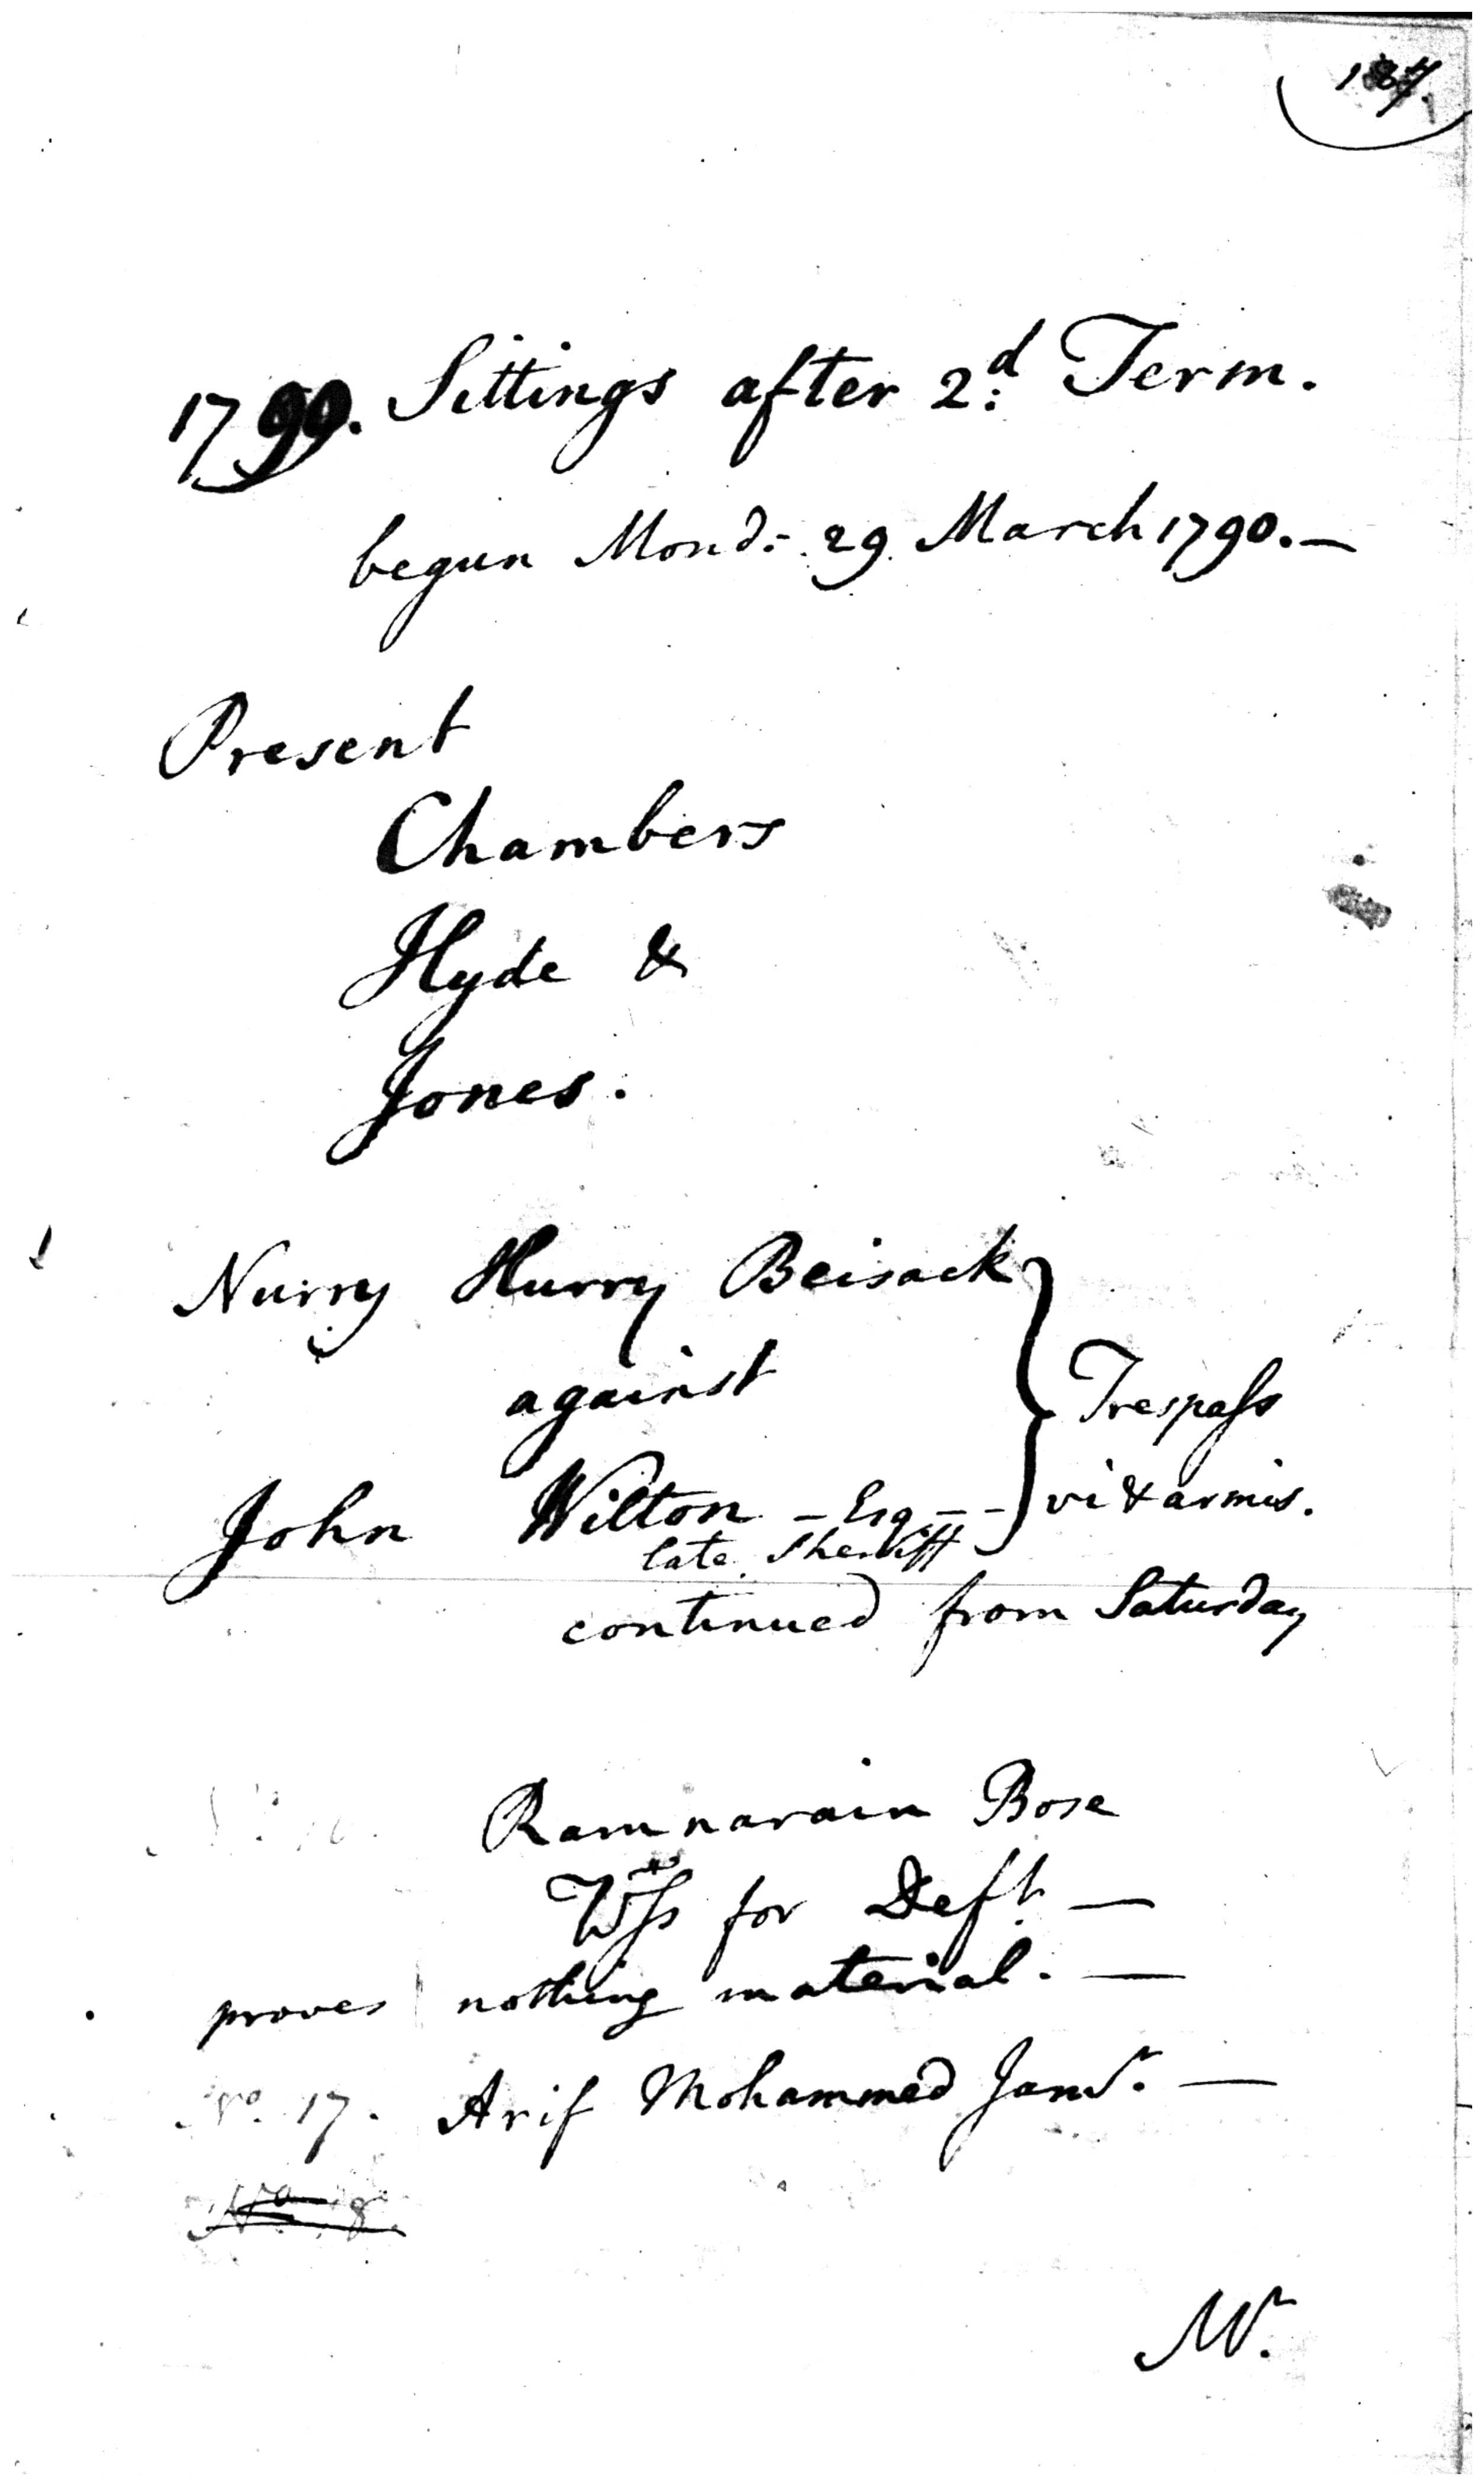 137.
1790. Sittings after 2.d Term.
begun Mond:- 29. March 1790. —
Present
Chambers
Hyde &
Jones.
Nurry Hurry Beisack
against
Trespass
John Wilton - Esq. - - vi & armis.
late Sheriff
continued from Saturday
Ramnarain Bose
Wss for Deft. —
proves nothing material. —
No. 17. Arif Mohammed Jamr. —
Mr.